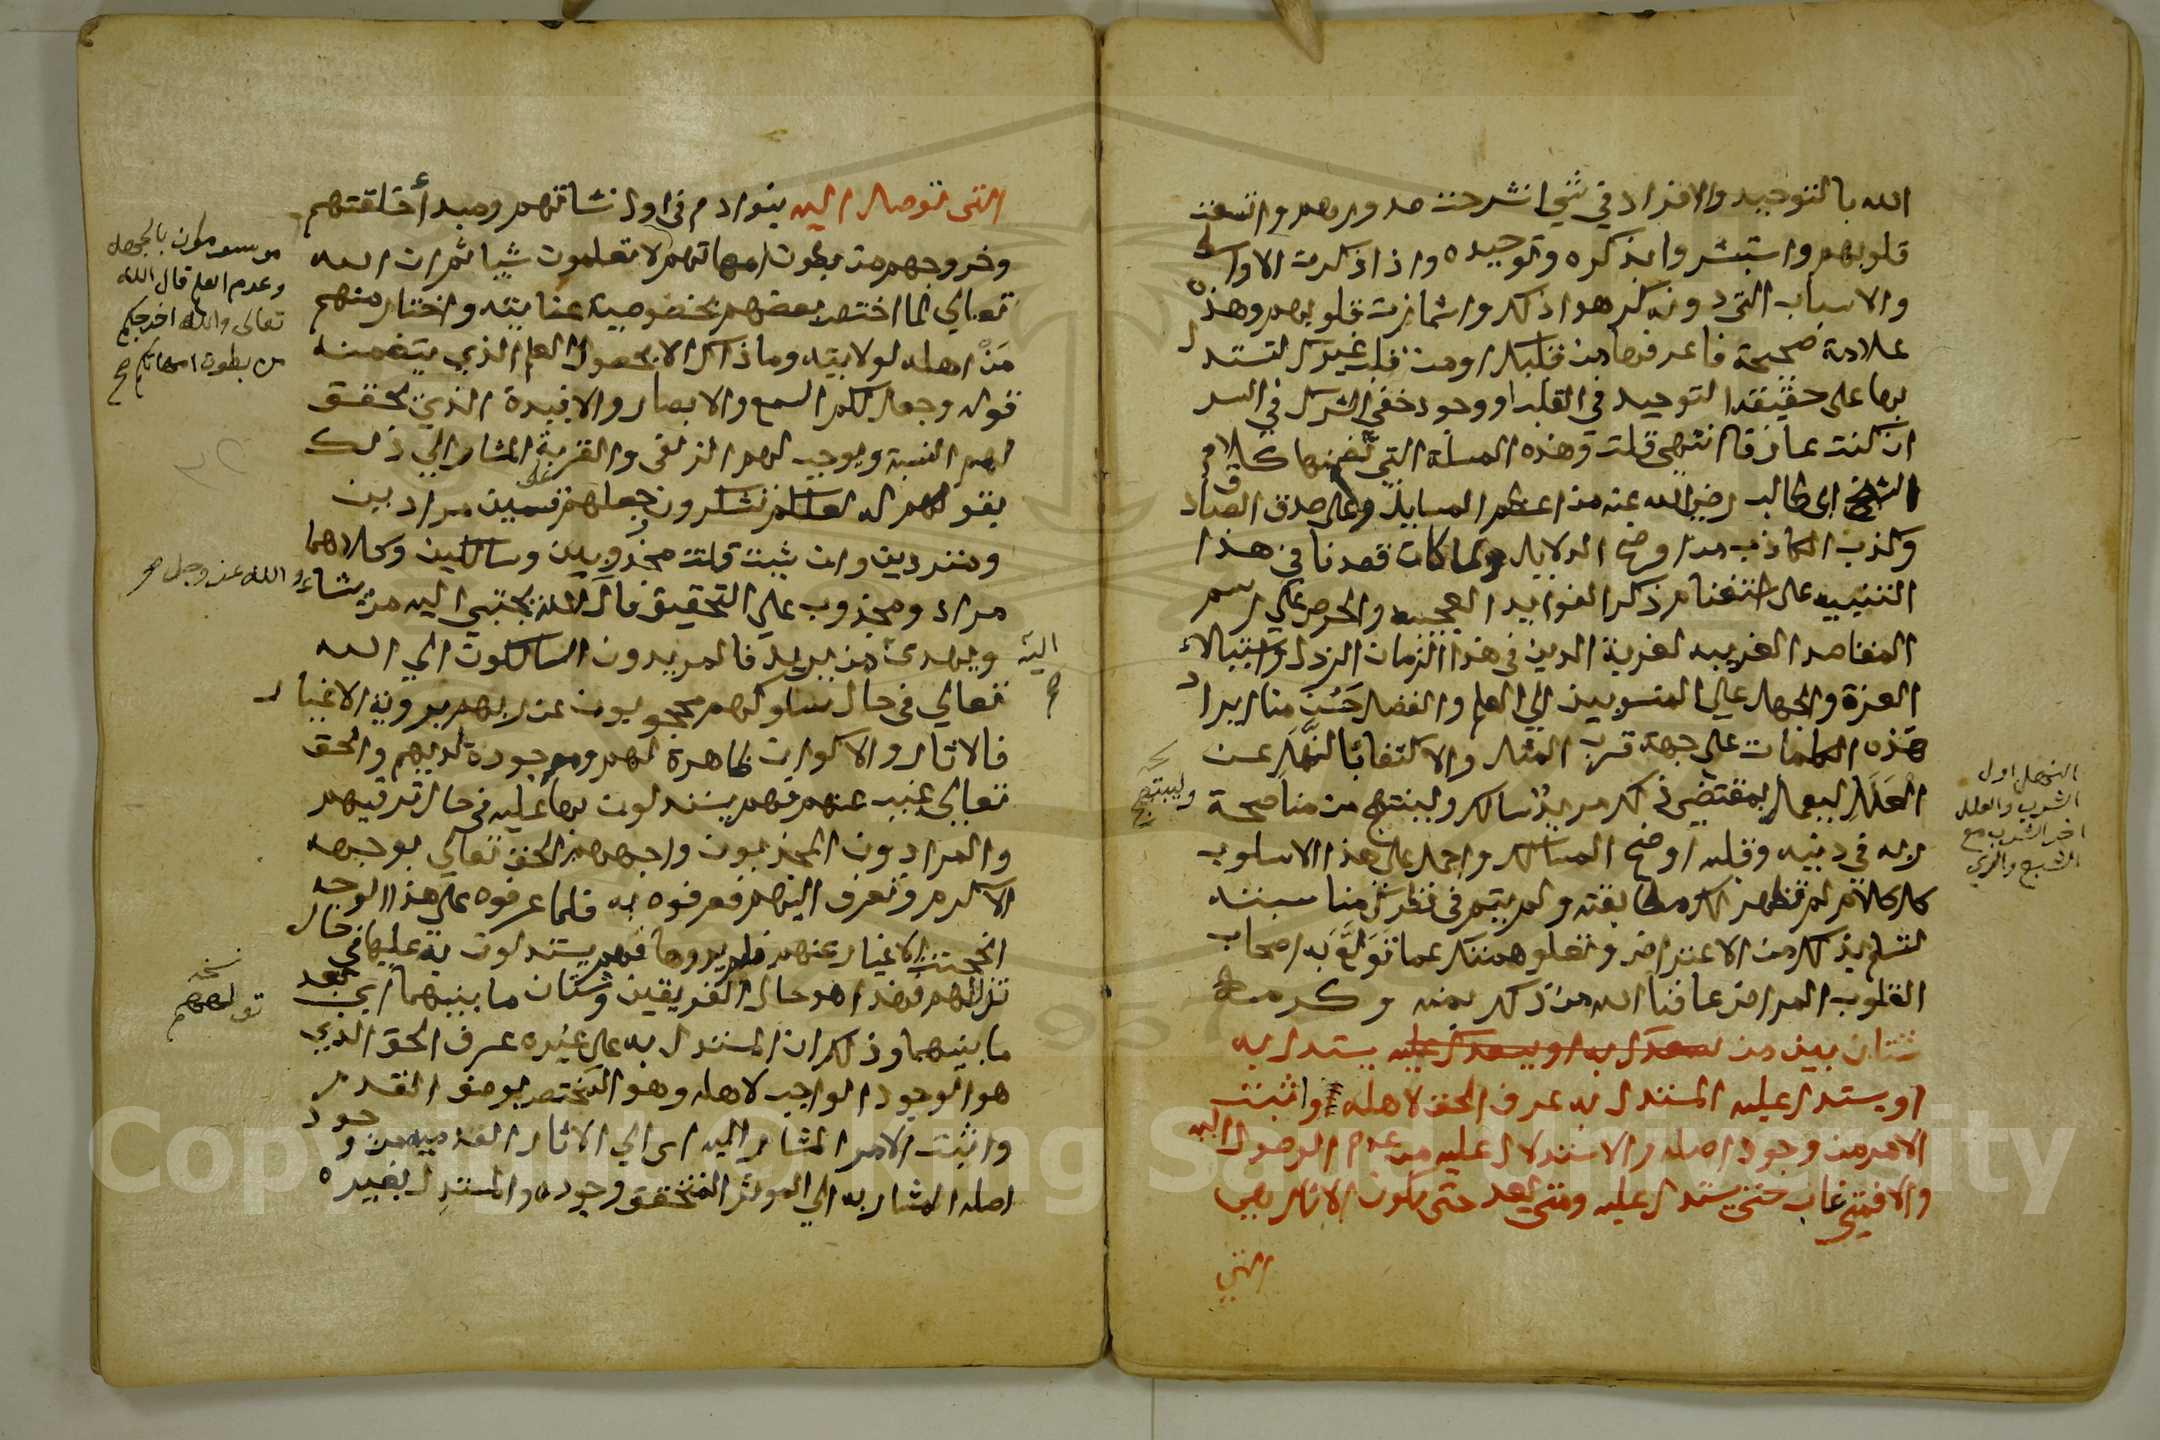 الله بالتوحيد والافراد في شي انشرحت صدورهم واتسعت
قلوبهم واستبشروا بذكره وتوحيده واذا ذكرت الاواسط
والاسباب التي دونه كره اذلك واشمازت قلوبهم وهذه
علامة صحيحة فاعرفها من قلبك او من قلب غيرك لتستدل
بها على حقيقة التوحيد في القلب او وجود خفي الشرك في السر
ان كنت عارفا انتهى قلت وهذه المسلة التي تضمنها كلام
الشيخ ابى طالب رضي الله عنه من اعظم المسايل وعلى صدق الصادق
وكذب الكاذب من اوضح الدلايل ولما كان قصدنا في هذا
التنبيه على اغتنام ذكر الفوايد العجيبه والحرص علي رسم
المقاصد الغريبه لغربة الدين في هذا الزمان الرذل واستيلاء
العزة والجهل علي المنسوبين الي العلم والفضل حسن منا ايراد
هذه الكلمات على جهة قرب المثال والاكتفا بالنهل عن
العلل ليعمل بمقتضي ذلك مريد سالك ولينتهج من مناصحة
ربه في دينه وقلبه اوضح المسالك واحمل على هذا الاسلوب
كل كلام لم تظهر لك مطابقته ولم يتم في نظرك مناسبته
لتسلم بذلك من الاعتراض وتعلو همتك عما تولع به اصحاب
القلوب المراض عافنا الله من ذلك بمنه وكرمه
شتان بين من يستدل به
او يستدل عليه المستدل به عرف الحق لاهله واثبت
الامر من وجود اصله والاستدلال عليه من عدم الوصول اليه
والا فمتى غاب حتى يستدل عليه ومتى بعد حتى تكون الاثار هي
التي
النهل اول
الشرب والعلل
اخر الشرب مع
الشبع والري
ولينتهج
التى توصل اليه بنوا ادم فى اول نشاتهم ومبدأ خلقتهم
وخروجهم من بطون امهاتهم لا تعلمون شيا ثم ان الله
تعالي لما اختص بعضهم بخصوصية عنايته واختار منهم
من اهله لولايته وما ذاك الا بحصول العلم الذي يتضمنه
قوله وجعل لكم السمع والابصار والافيدة الذي يحقق
لهم النسبة ويوجب لهم الزلفى والقربة المشار الي ذلك
بقوله لعلكم تشكرون جعلهم على قسمين مرادين
ومريدين وان شيت قلت مجذوبين وسالكين وكلاهما
مراد ومجذوب علي التحقيق قال الله يجتبي اليه من يشاء
ويهدي من يريد فالمريدون السالكون الي الله
تعالي فى حال سلوكهم محجوبون عن ربهم برؤية الاغيار
فالاثار والاكوان ظاهرة لهم وموجودة لديهم والحق
تعالي غيب عنهم فهم يستدلون بها عليه فى حال ترقيهم
والمرادون المجذبون واجههم الحق تعالي بوجهه
الاكرم وتعرف اليهم فعرفوه به فلما عرفوه على هذا الوجه
انحجبت الاغيار عنهم فلم يروها فهم يستدلون به عليها فى حال
تدليهم فهذا هو حال الفريقين وشتان ما بينهما اي بعد
ما بينهما وذلك ان المستدل به على غيره عرف الحق الذي
هو الوجود الواجب لاهله وهو المختص بوصف القدم
واثبت الامر المشار اليه اى الي الاثار العدميه من وجود
اصله المشار به الي الموثر المتحقق وجوده والمستدل بغيره
موسومون بالجهل
وعدم العلم قال الله
تعالى والله اخرجكم
من بطون امهاتكم صح
والله عز وجل صح
اليه
صح
نسخه
تولههم